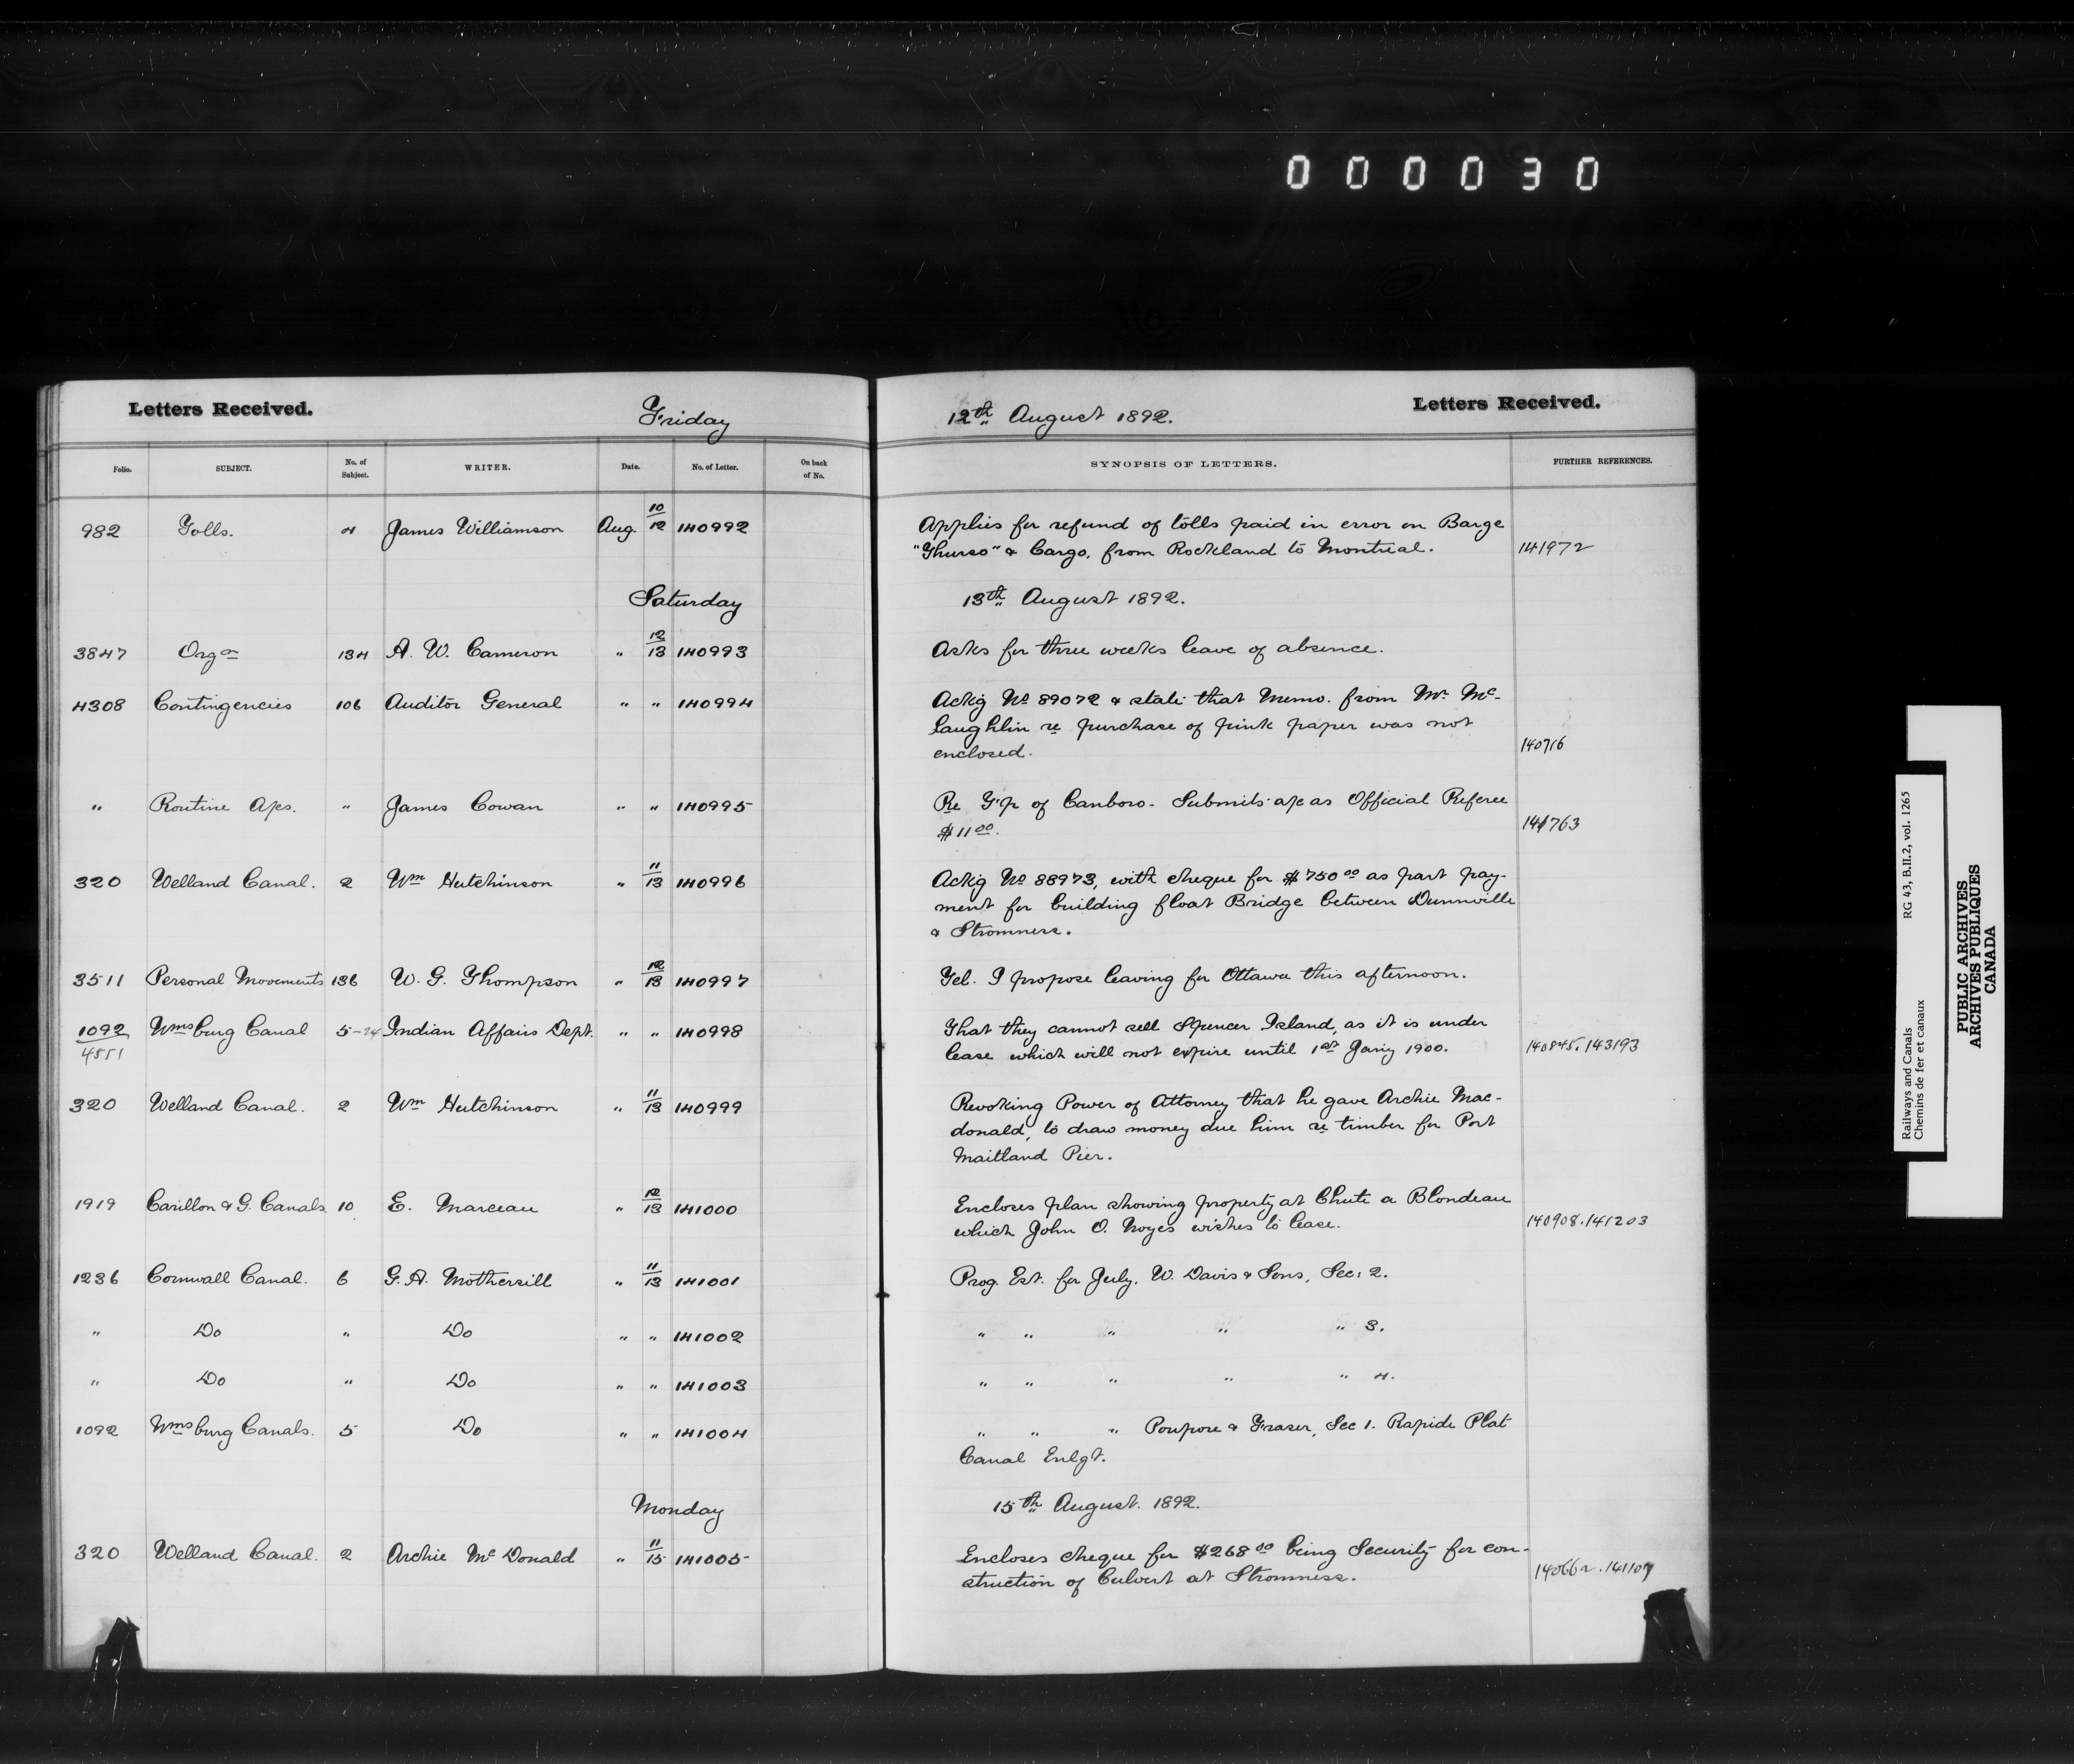 000030
Letters Received.
Friday
12th August 1892.
Letters Received.
Folio. SUBJECT. No. of Subject. WRITER. Date. No. of Letter. On back of No. SYNOPSIS OF LETTERS. FURTHER REFERENCES.
982 Tolls. 4 James Williamson Aug. 10/12 140992 Applies for refund of tolls paid in error on Barge
"Thurso" & Cargo, from Rockland to Montreal. 141972
Saturday 13th August 1892.
3847 Orgn 134 A. W. Cameron " 12/13 140993 Asks for three weeks leave of absence.
4308 Contingencies 106 Auditor General " " 140994 Ackg No 89072 & state that Memo. from Mr. Mc-
Laughlin re purchase of pink paper was not
enclosed. 140716
" Routine A/cs. " James Cowan " " 140995 Re T'p of Canboro - Submits a/c as Official Referee
$11 00. 141763
320 Welland Canal. 2 Wm Hutchinson " 11/13 140996 Ackg No 88973, with cheque for $750 00 as part pay-
ment for building float Bridge between Dunnville
& Stromness.
3511 Personal Movements 136 W. G. Thompson " 12/13 140997 Tel. I propose leaving for Ottawa this afternoon.
1092/4551 Wmsburg Canal 5-24 Indian Affairs Dept. " " 140998 That they cannot sell Spencer Island, as it is under
lease which will not expire until 1st Jany 1900. 140845. 143193
320 Welland Canal. 2 Wm Hutchinson " 11/13 140999 Revoking Power of Attorney that he gave Archie Mac-
donald, to draw money due him re timber for Port
Maitland Pier.
1919 Carillon & G. Canals 10 E. Marceau " 12/13 141000 Encloses plan showing property at Chute a Blondeau
which John O. Noyes wishes to lease. 140908. 141203
1236 Cornwall Canal. 6 G. A. Mothersill " 11/13 141001 Prog. Est. for July. W. Davis & Sons, Sec: 2.
" Do " Do " " 141002 " " " " " 3.
" Do " Do " " 141003 " " " " " 4.
1092 Wmsburg Canals. 5 Do " " 141004 " " " Poupore & Fraser, Sec 1. Rapide Plat
Canal Enlgt.
Monday 15th August. 1892.
320 Welland Canal. 2 Archie Mc Donald " 11/15 141005 Encloses cheque for $268 00 being Security for con-
struction of Culvert at Stromness. 140662. 141107
Railways and Canals RG 43, B.II.2, vol. 1265
Chemins de fer et canaux
PUBLIC ARCHIVES
ARCHIVES PUBLIQUES
CANADA